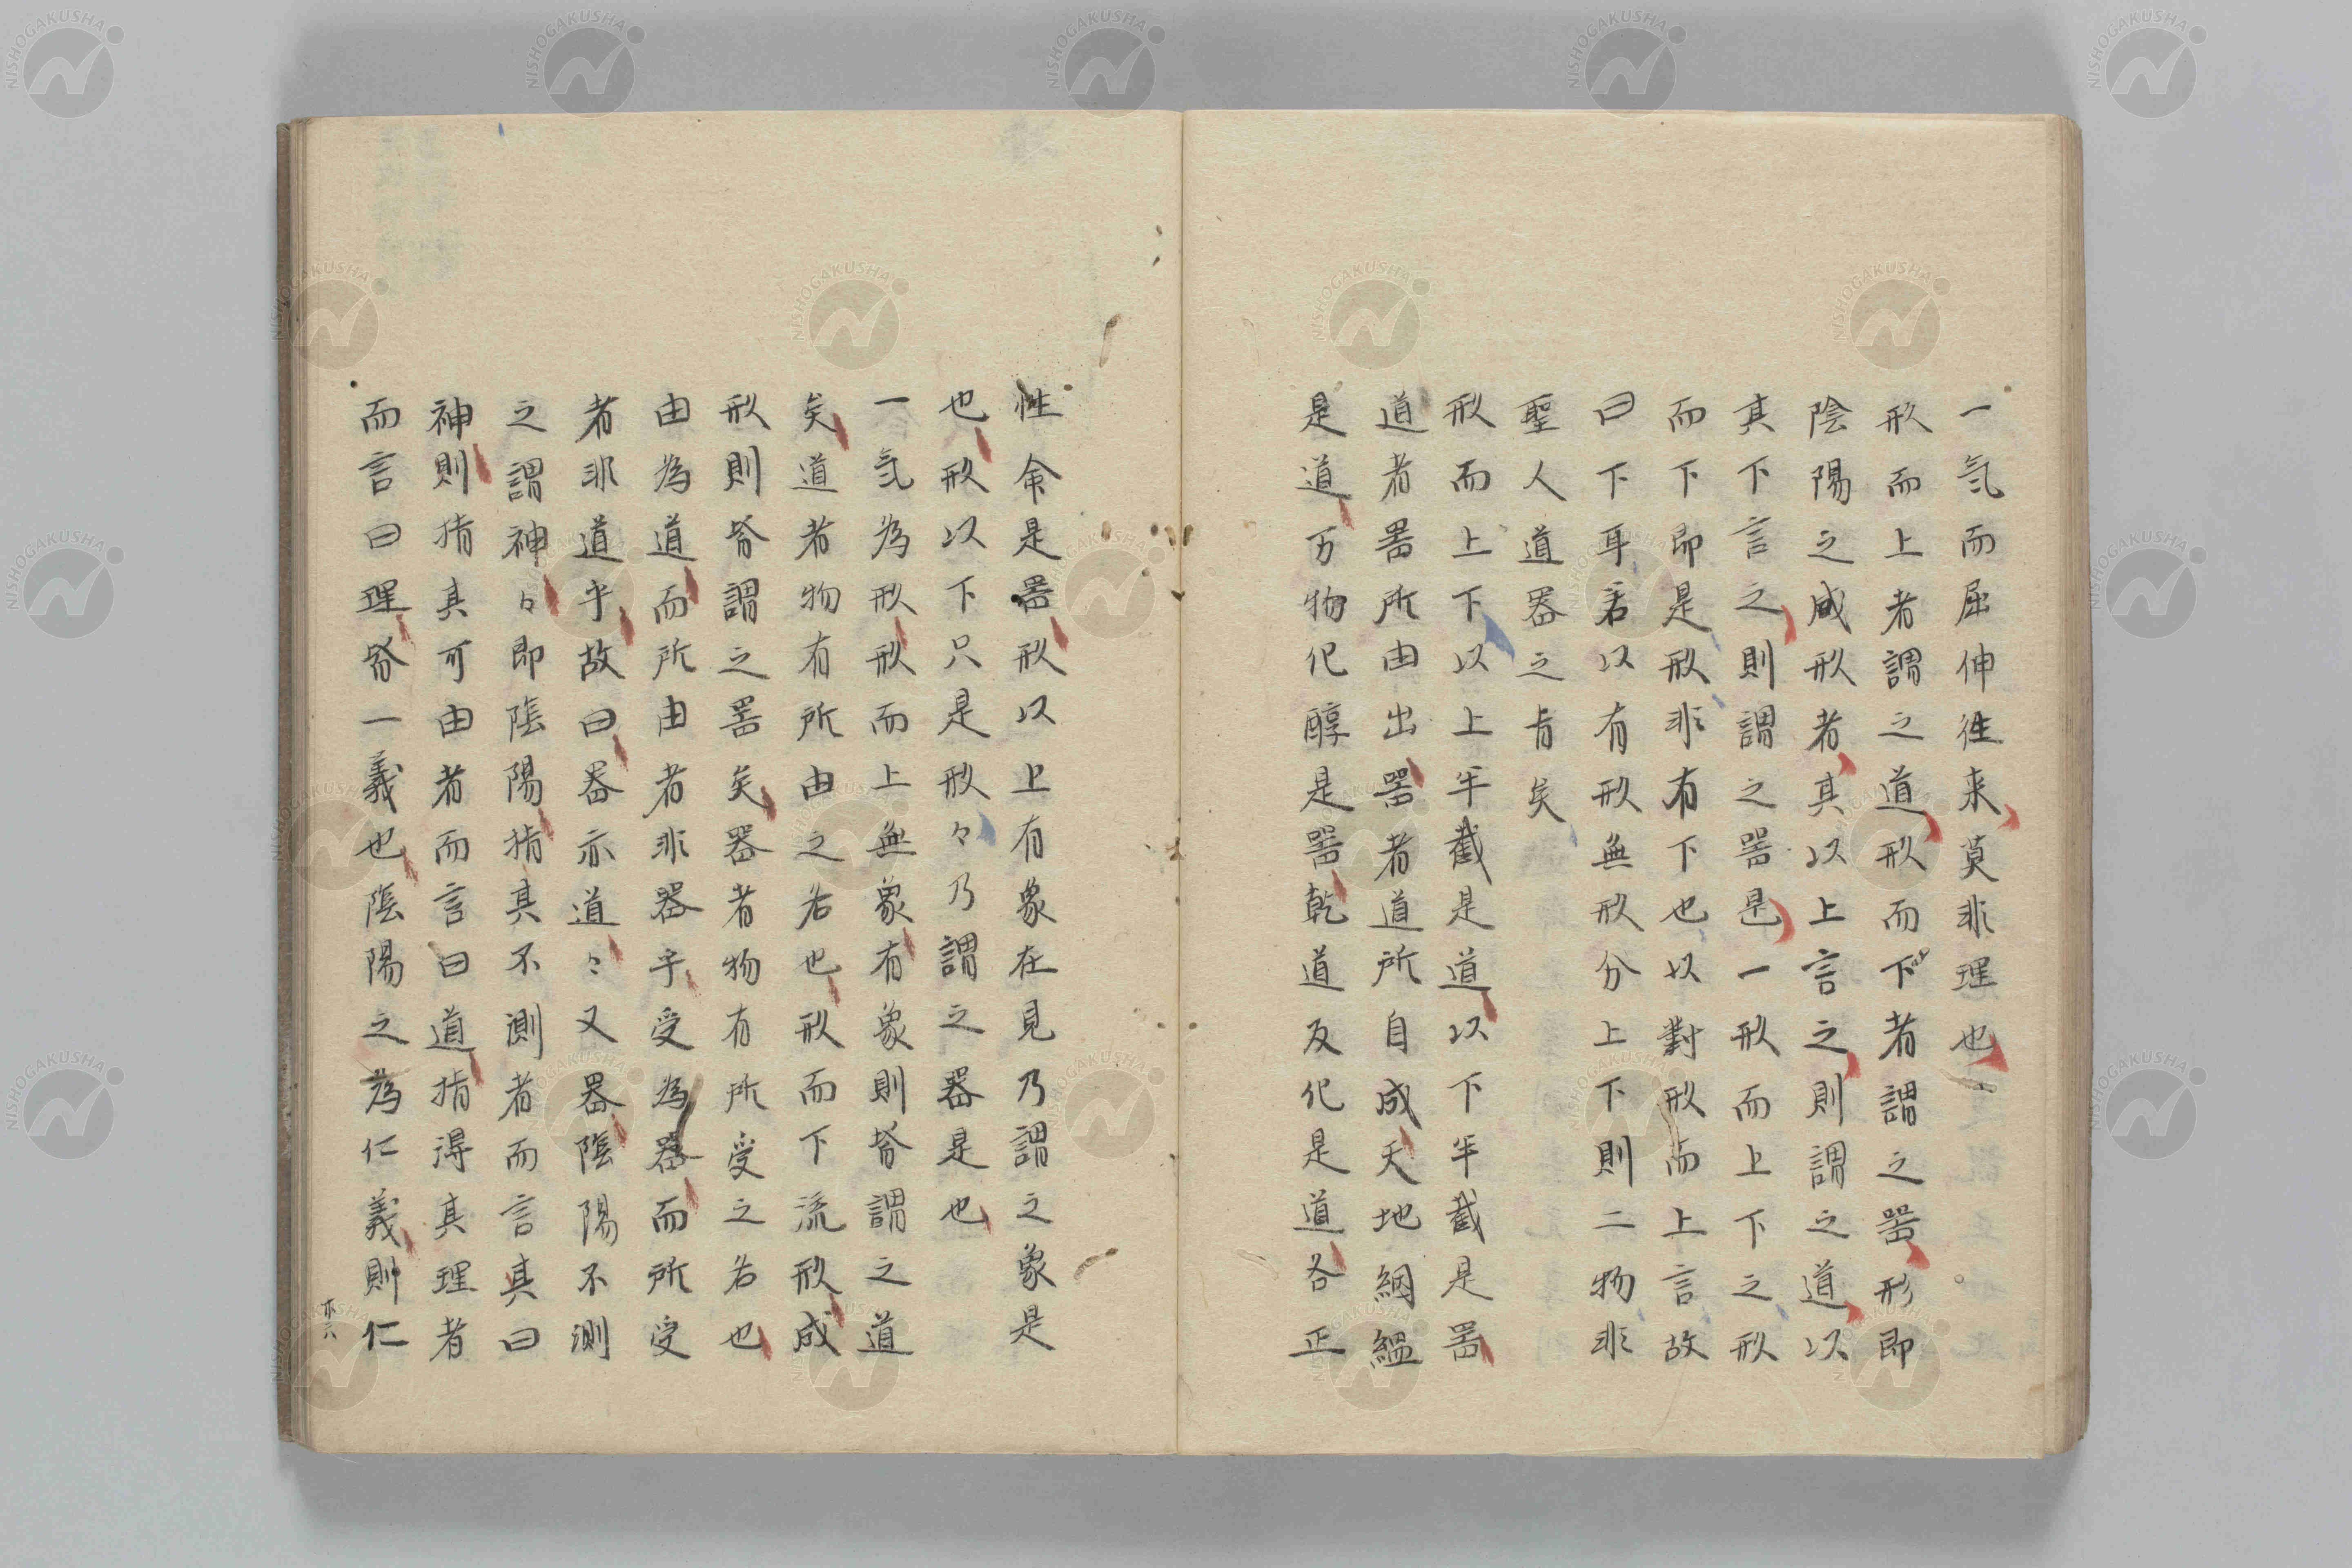 一気而屈伸往来莫非理也
形而上者謂之道形而下者謂之噐形即
陰陽之成形者其以上言之則謂之道以
其下言之則謂之噐是一形而上下之形
而下即是形非有下也以對形而上言故
曰下耳若以有形無形分上下則二物非
聖人道器之肯矣
形而上下以上半截是道以下半截是噐
道者噐所由出噐者道所自成天地網緼
是道万物化醇是噐乾道反化是道各正
性命是噐形以上有象在見乃謂之象是
也形以下只是形々乃謂之器是也
一気為形形而上無象有象則眘謂之道
矣道者物有所由之名也形而下流形成
形則眘謂之噐矣器者物有所受之名也
由為道而所由者非器乎受為器而所受
者非道乎故曰器亦道々又器陰陽不測
之謂神々即陰陽指其不測者而言其曰
神則指其可由者而言曰道指得其理者
而言曰理眘一義也陰陽之為仁義則仁
NISHOGAKUSHA